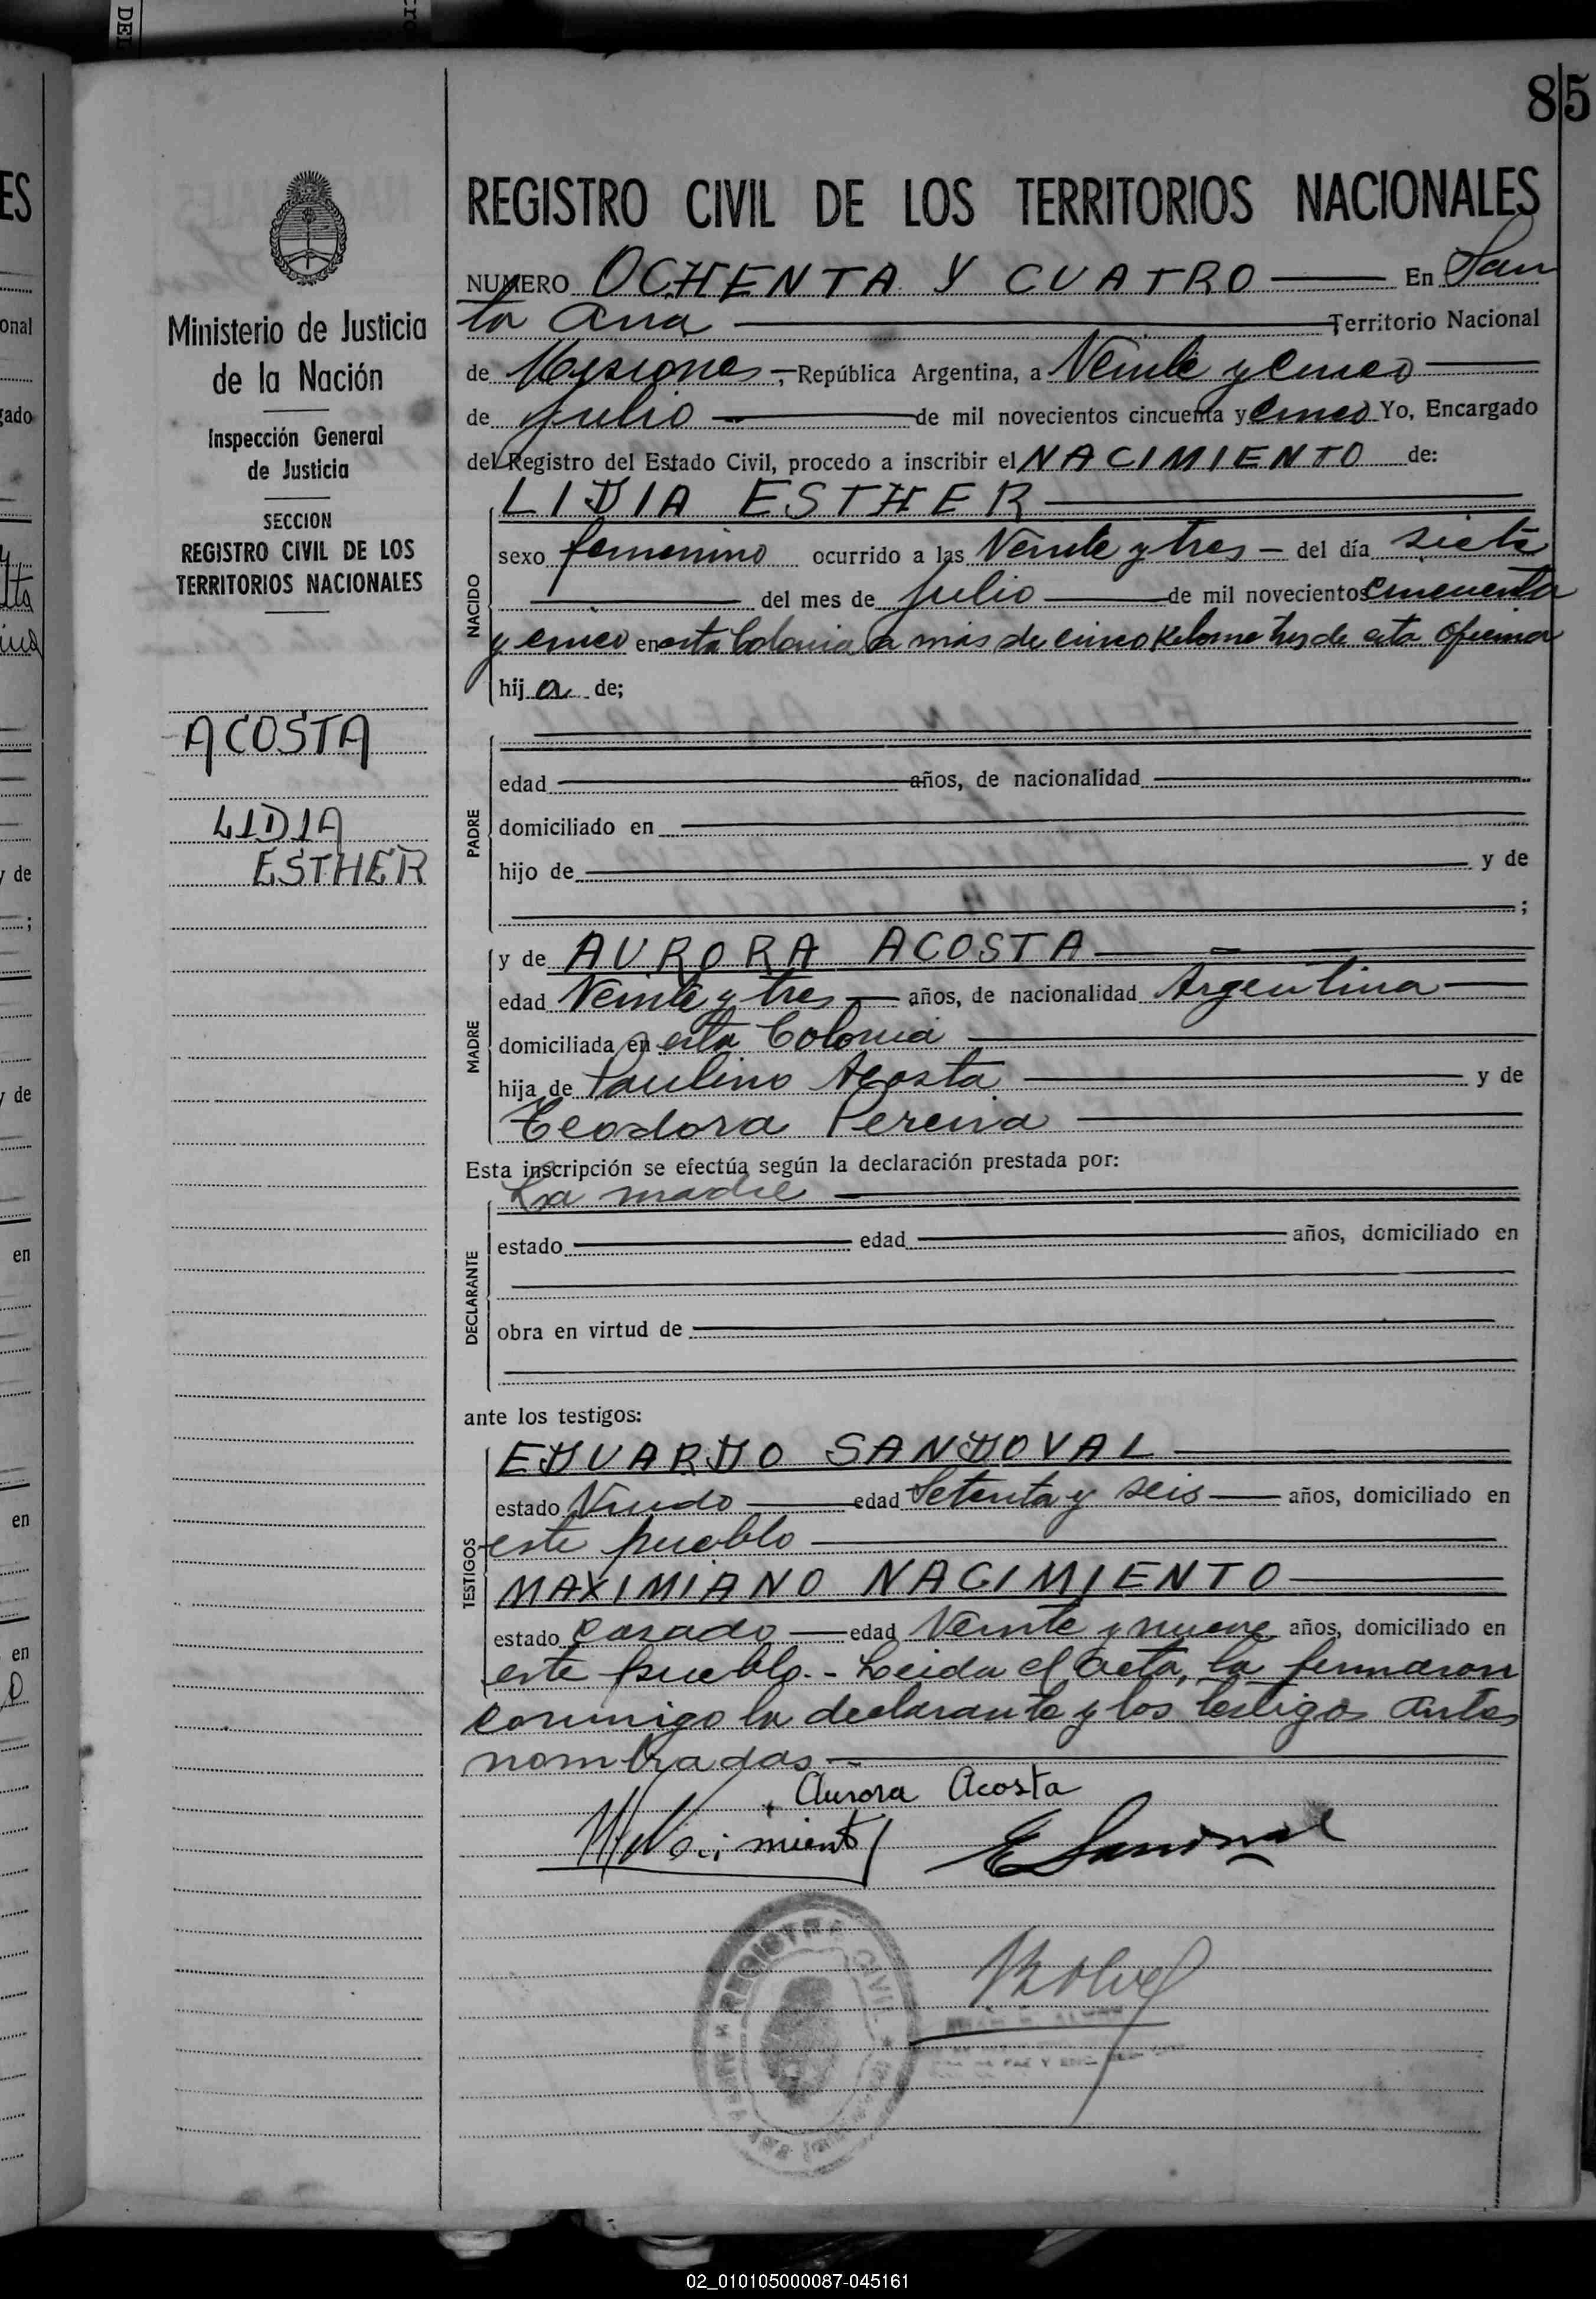 85
REGISTRO CIVIL DE LOS TERRITORIOS NACIONALES
NUMERO OCHENTA Y CUATRO En San
ta Ana Territorio Nacional
de Misiones, República Argentina, a Veinte y cinco
de Julio de mil novecientos cincuenta y cinco Yo, Encargado
del Registro del Estado Civil, procedo a inscribir el NACIMIENTO de:
LIDIA ESTHER
sexo femenino ocurrido a las Veinte y tres - del día siete
del mes de julio de mil novecientos cincuenta
y cinco en esta Colonia a más de cinco Kilometros de esta Oficina
hija de;
NACIDO
edad años, de nacionalidad
domiciliado en
hijo de y de
;
PADRE
y de AURORA ACOSTA
edad Veinte y tres años, de nacionalidad Argentina
domiciliada en esta Colonia
hija de Paulino Acosta y de
Teodora Pereira
MADRE
Esta inscripción se efectúa según la declaración prestada por:
La madre
estado edad años, domiciliado en
obra en virtud de
DECLARANTE
ante los testigos:
EDUARDO SANDOVAL
estado Viudo edad Setenta y seis años, domiciliado en
este pueblo
MAXIMIANO NACIMIENTO
estado casado edad Veinte y nueve años, domiciliado en
este pueblo.- Leida el acta, la firmaron
TESTIGOS
conmigo la declarante y los testigos antes
nombrados
Aurora Acosta
M Nacimiento E Sandoval
REGISTRO CIVIL
Ministerio de Justicia
de la Nación
Inspección General
de Justicia
SECCION
REGISTRO CIVIL DE LOS
TERRITORIOS NACIONALES
ACOSTA
LIDIA
ESTHER
02_010105000087-045161